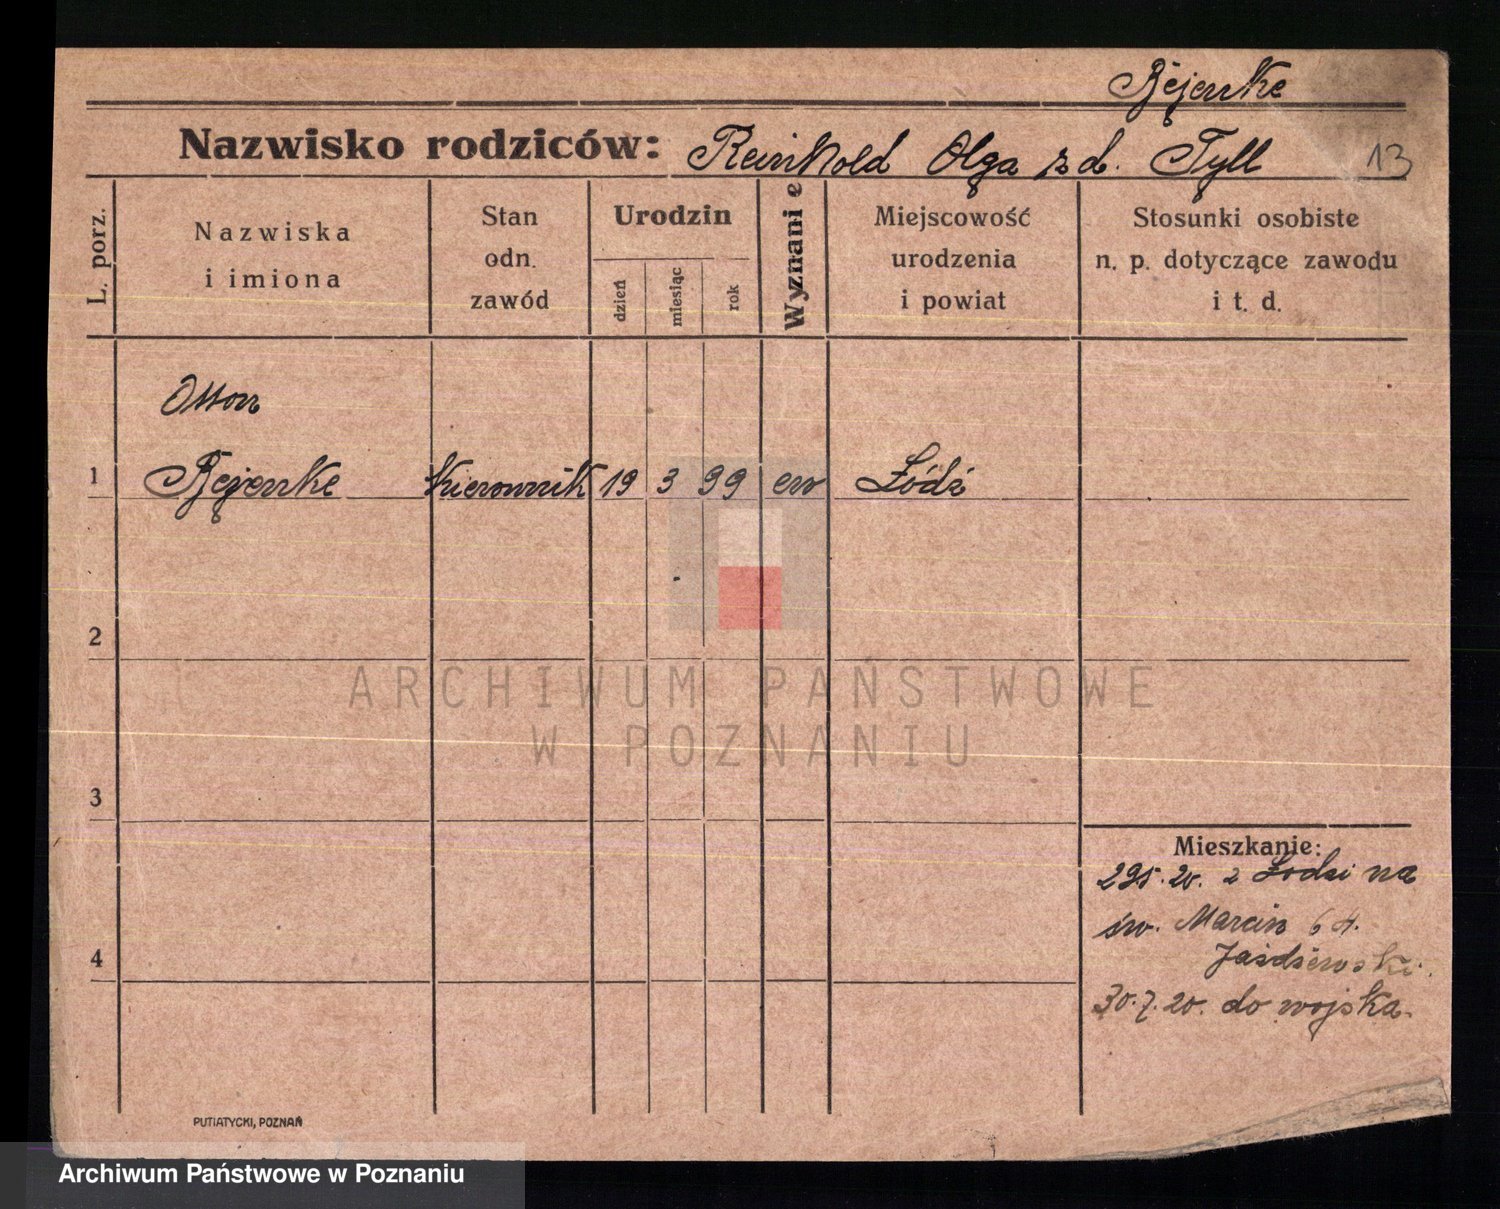 Bejenke
Nazwisko rodziców: Reinhold Olga z d. Tyll 13
L. porz.
Nazwiska
i imiona
Stan
odn.
zawód
Urodzin
dzień
miesiąc
rok
Wyznanie
Miejscowość
urodzenia
i powiat
Stosunki osobiste
n. p. dotyczące zawodu
i t. d.
Otton
1 Bejenke kierownik 19 3 99 ew Łódź
2
ARCHIWUM PAŃSTWOWE
W POZNANIU
3
Mieszkanie:
295.20. z Łodzi na
św. Marcin 64.
4
30.7.20. do wojska.
PUTIATYCKI, POZNAŃ
Archiwum Państwowe w Poznaniu